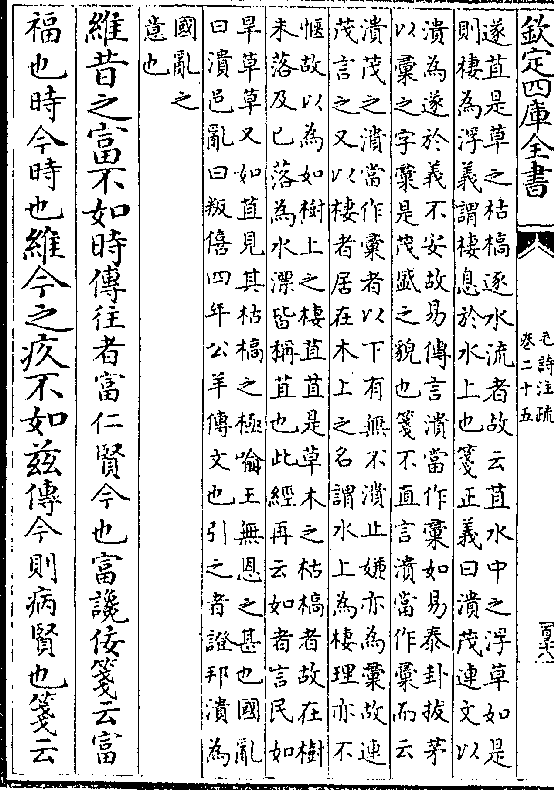 欽定四庫全書
毛詩注疏
卷二十五
遂苴是草之枯槁逐水流者故云苴水中之浮草如是
則棲為浮義謂棲息於水上也箋正義曰潰茂連文以
潰為遂於義不安故易傳言潰當作彚如易泰卦拔茅
以彚之字彚是茂盛之貌也箋不直言潰當作彚而云
潰茂之潰當作彚者以下有無不潰止嫌亦為彚故連
茂言之又以棲者居在木上之名謂水上為棲理亦不
愜故以為如樹上之棲苴苴是草木之枯槁者故在樹
未落及已落為水漂皆稱苴也此經再云如者言民如
旱草草又如苴見其枯槁之極喻王無恩之甚也國亂
曰潰邑亂曰叛僖四年公羊傳文也引之者證邦潰為
國亂之
意也
維昔之富不如時傳往者富仁賢今也富讒佞箋云富
福也時今時也維今之疚不如茲傳今則病賢也箋云